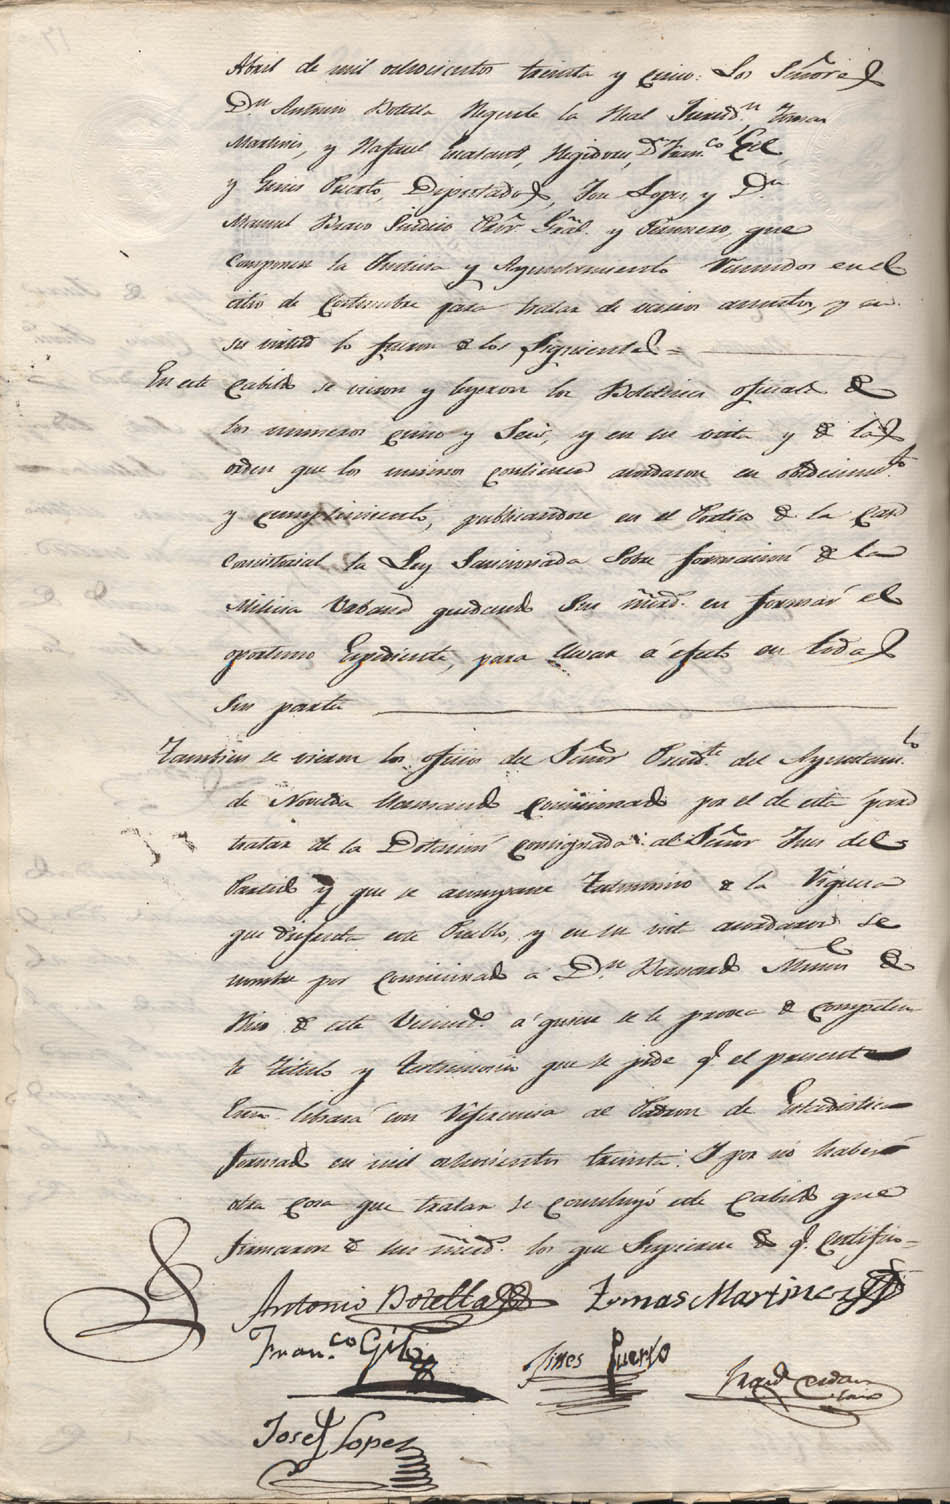 Abril de mil ochocientos treinta y cinco: Los Señores
Dn. Antonio Botella Regente la Real Jurisdn. Tomas
Martines, y Rafael Regidores, Dn. Franco. Gil
y Gines Puerto, Diputados, Jose Lopes, y Dn.
Manuel Bravo Sindico Pror. Gral. y Personero, que
componen la Justicia y Ayuntamiento Reunidos en el
citio de costumbre para tratar de varios asuntos, y en
su virtud lo fueron de los Siguientes =
En este Cabildo se vieron y leyeron los Boletines oficiales de
los numeros cinco y Seis, y en su vista y de las
orden que los mismos contienen acordaron su obedecimto.
y cumplimiento, publicandose en el Portico de la Casa
Consistorial la Ley Sancionada Sobre formacion de la
Milicia Urbana quedando Sus mrds. en formar el
oportuno Expediente, para llevar á efecto en todas
Sus partes
Tambien se vieron los oficios del Señor Presidte. del Ayuntamto.
de Novelda llamando comisionado por el de esta para
tratar de la Dotacion consignada al Señor Jues del
Partido y que se acompañe Testimonio de la Riquesa
que disfruta este Pueblo, y en su vista acordaron se
nombre por comicionado á Dn. Bernardo Muños de
Rico de este Vecind. á quien se le provea de competen
te Titulo y testimonio que se pide q. el presente
Esno. librará con Referencia al Padron de Estadistica
formado en mil ochocientos treinta. Y por no haber
otra cosa que tratar se concluyó este Cabildo que
firmaron de sus mrds. los que Supieron de q. certifico =
Antonio Botella Tomas Martinez
Franco. Gil Gines Puerto
Josef Lopez